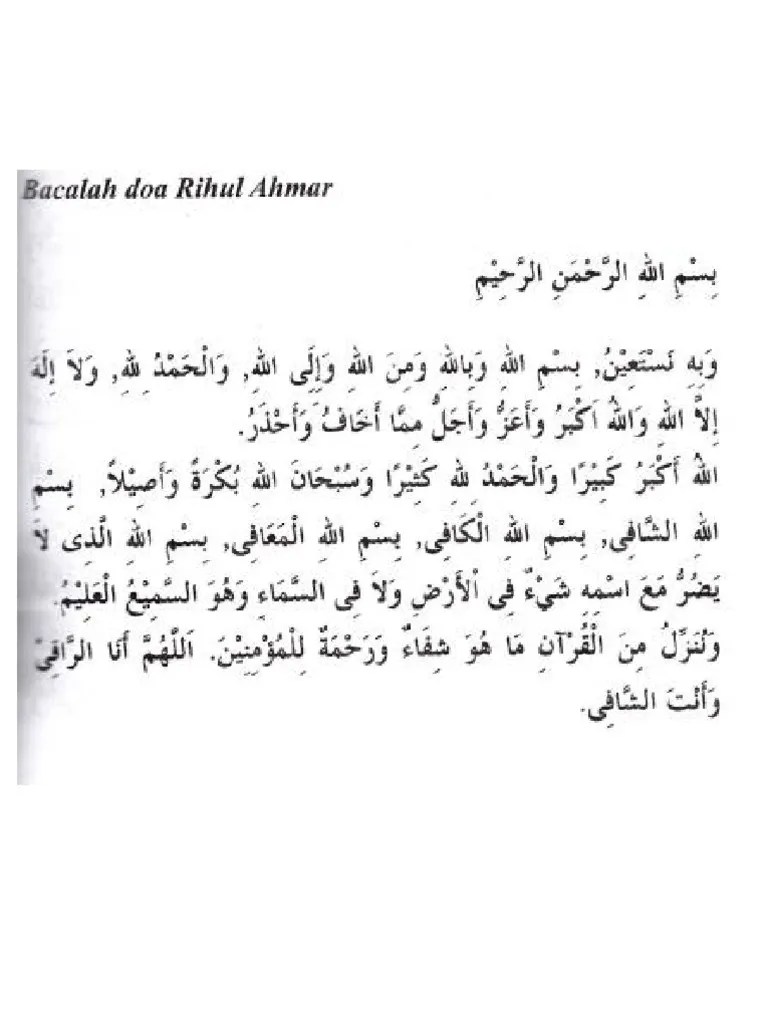 Bacalah doa Rihul Ahmar
بِسْمِ اللهِ الرَّحْمَنِ الرَّحِيْمِ
وَبِهِ نَسْتَعِيْنُ, بِسْمِ اللهِ وَبِاللهِ وَمِنَ اللهِ وَإِلَى اللهِ, وَالْحَمْدُ لِلهِ, وَلاَ إِلَهَ
إِلاَّ اللهِ وَاللهُ اَكْبَرُ وَأَعَزُّ وَأَجَلُّ مِمَّا أَخَافُ وَأَحْذَرُ.
اللهُ أَكْبَرُ كَبِيْرًا وَالْحَمْدُ لِلهِ كَثِيْرًا وَسُبْحَانَ اللهِ بُكْرَةً وَأَصِيْلاً, بِسْمِ
اللهِ الشَّافِى, بِسْمِ اللهِ الْكَافِى, بِسْمِ اللهِ الْمَعَافِى, بِسْمِ اللهِ الَّذِى لاَ
يَضُرُّ مَعَ اسْمِهِ شَيْءٌ فِى اْلأَرْضِ وَلاَ فِى السَّمَاءِ وَهُوَ السَّمِيْعُ الْعَلِيْمُ.
وَنُنَزِّلُ مِنَ الْقُرْآنِ مَا هُوَ شِفَاءٌ وَرَحْمَةٌ لِلْمُؤْمِنِيْنَ. اَللَّهُمَّ أَنَا الرَّاقِىْ
وَأَنْتَ الشَّافِى.